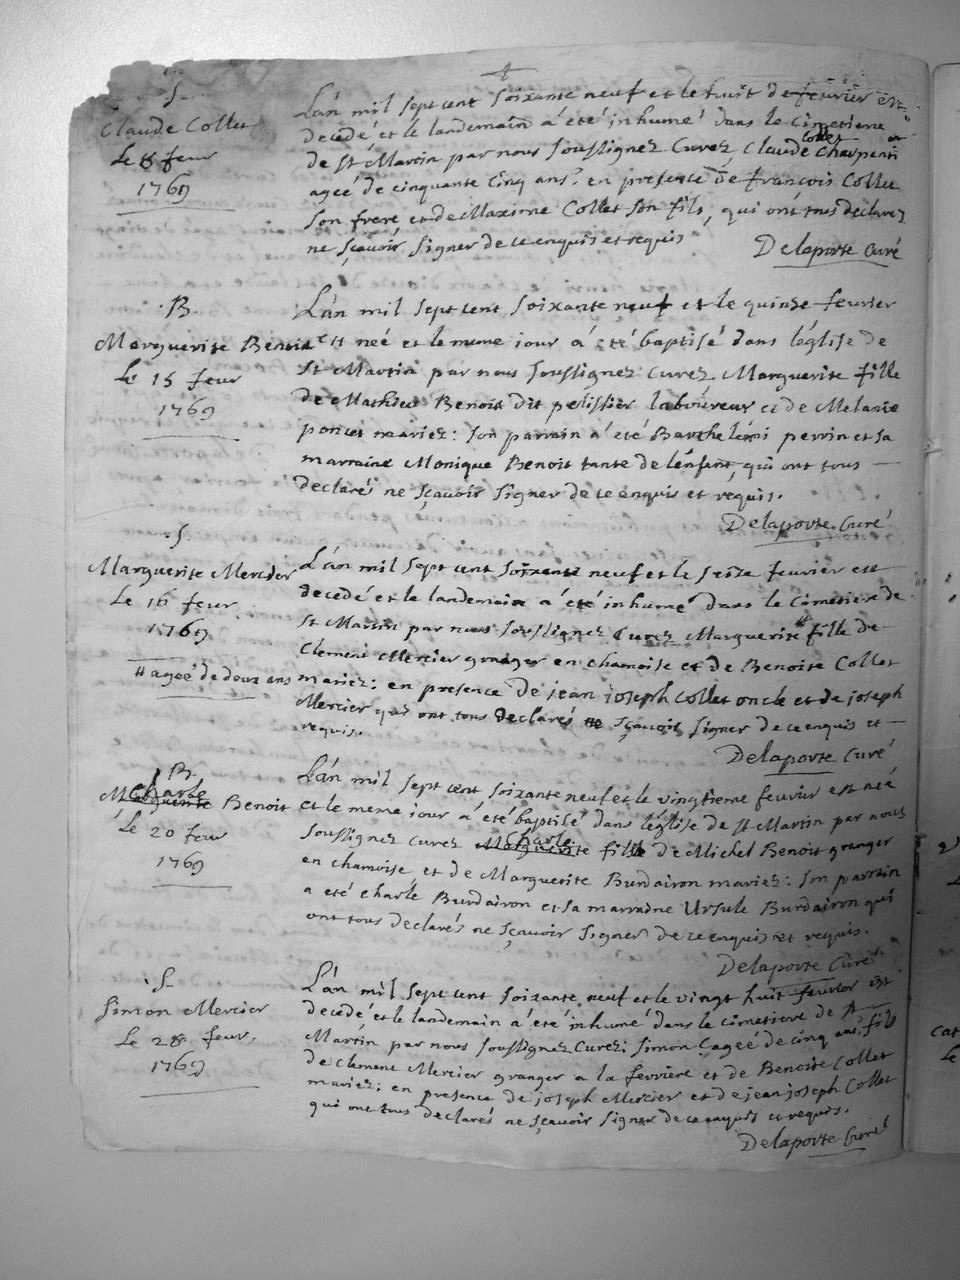 S
Claude Collet
Le 8 feur
1769
L'an mil sept cent soixante neuf et le huit de feurier est
decedé et le landemain a été inhumé dans le Cimetiere
de St Martin par nous soussignez Curez, Claude Collet Charpentier
ageé de cinquante cinq ans, en presence de françois Collet
son frere et de Maxime Collet son fils, qui ont tous declarez
ne sçavoir signer de ce enquis et requis
Delaporte Curé
B
Marguerite Benoit
Le 15 feur
1769
L'an mil sept cent soixante neuf et le quinze feurier
est neé et le meme iour a été baptisé dans l'église de
St Martin par nous soussignez Curez Marguerite fille
de Mathieu Benoit dit pelissier laboureur et de Melanie
poncet mariez: son parrain a été Barthelémi perrin et sa
marraine Monique Benoit tante de l'enfant, qui ont tous
declarés ne sçavoir signer de ce enquis et requis.
Delaporte Curé
S
Marguerite Mercier
Le 16 feur
1769
# ageé de deux ans
L'an mil sept cent soixante neuf et le seize feurier est
decedé et le landemain a été inhumé dans le Cimetiere de
St Martin par nous soussignez Curez Marguerite # fille de
Clement Mercier granger en chamoise et de Benoite Collet
mariez; en presence de jean joseph Collet oncle et de joseph
Mercier qui ont tous declarés ne sçavoir signer de ce enquis et
requis.
Delaporte Curé
B
Charle
Marguerite Benoit
Le 20 feur
1769
L'an mil sept cent soixante neuf et le vingtieme feurier est né
et le meme iour a été baptisé dans l'église de St Martin par nous
soussignez Curez Marguerite Charle fils de Michel Benoit granger
en chamoise et de Marguerite Burdairon mariez: son parrain
a été charle Burdairon et sa marraine Ursule Burdairon qui
ont tous declarés ne sçavoir signer de ce enquis et requis.
Delaporte Curé
S
Simon Mercier
Le 28 feur.
1769
L'an mil sept cent soixante neuf et le vingt huit feurier est
decedé et le landemain a été inhumé dans le cimetiere de St
Martin par nous soussignez Curez; Simon ageé de cinq ans, fils
de Clement Mercier granger a la ferriere et de Benoite Collet
mariez; en presence de joseph Mercier et de jean joseph Collet
qui ont tous declarés ne sçavoir signer de ce enquis et requis.
Delaporte Curé
Cat
Le